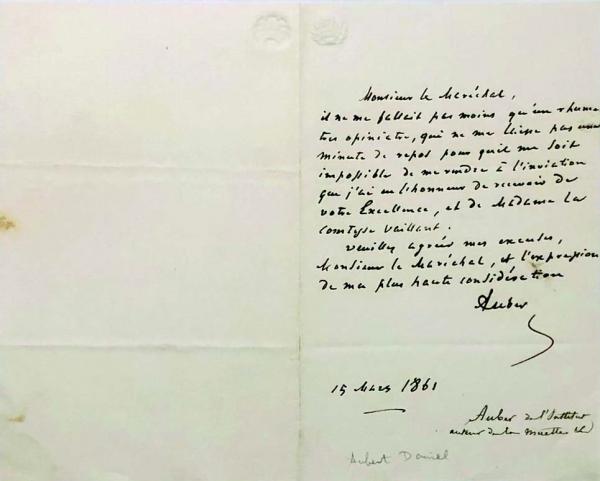 Monsieur le Maréchal,
il ne me fallait pas moins qu'un rhume
très opiniatre, qui ne me laisse pas une
minute de repos pour qu'il me soit
impossible de me rendre à l'inviation
que j'ai eu l'honneur de recevoir de
votre Excellence, et de Madame la
comtesse Vaillant.
veuillez agréer mes excuses,
Monsieur le Maréchal, et l'expression
de ma plus haute considération
Auber
15 Mars 1861
Auber de l'Institut
auteur de la Muette
Aubert Daniel